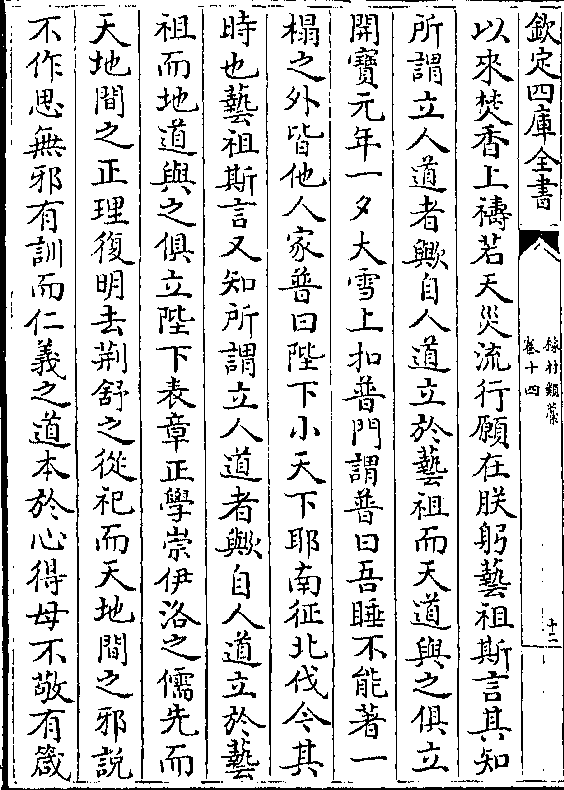 欽定四庫全書
稼村類藁
卷十四
十二
以來焚香上禱若天災流行願在朕躬藝祖斯言其知
所謂立人道者歟自人道立於藝祖而天道與之俱立
開寶元年一夕大雪上扣普門謂普曰吾睡不能著一
榻之外皆他人家普曰陛下小天下耶南征北伐今其
時也藝祖斯言又知所謂立人道者歟自人道立於藝
祖而地道與之俱立陛下表章正學崇伊洛之儒先而
天地間之正理復明去荆舒之從祀而天地間之邪說
不作思無邪有訓而仁義之道本於心得毋不敬有箴